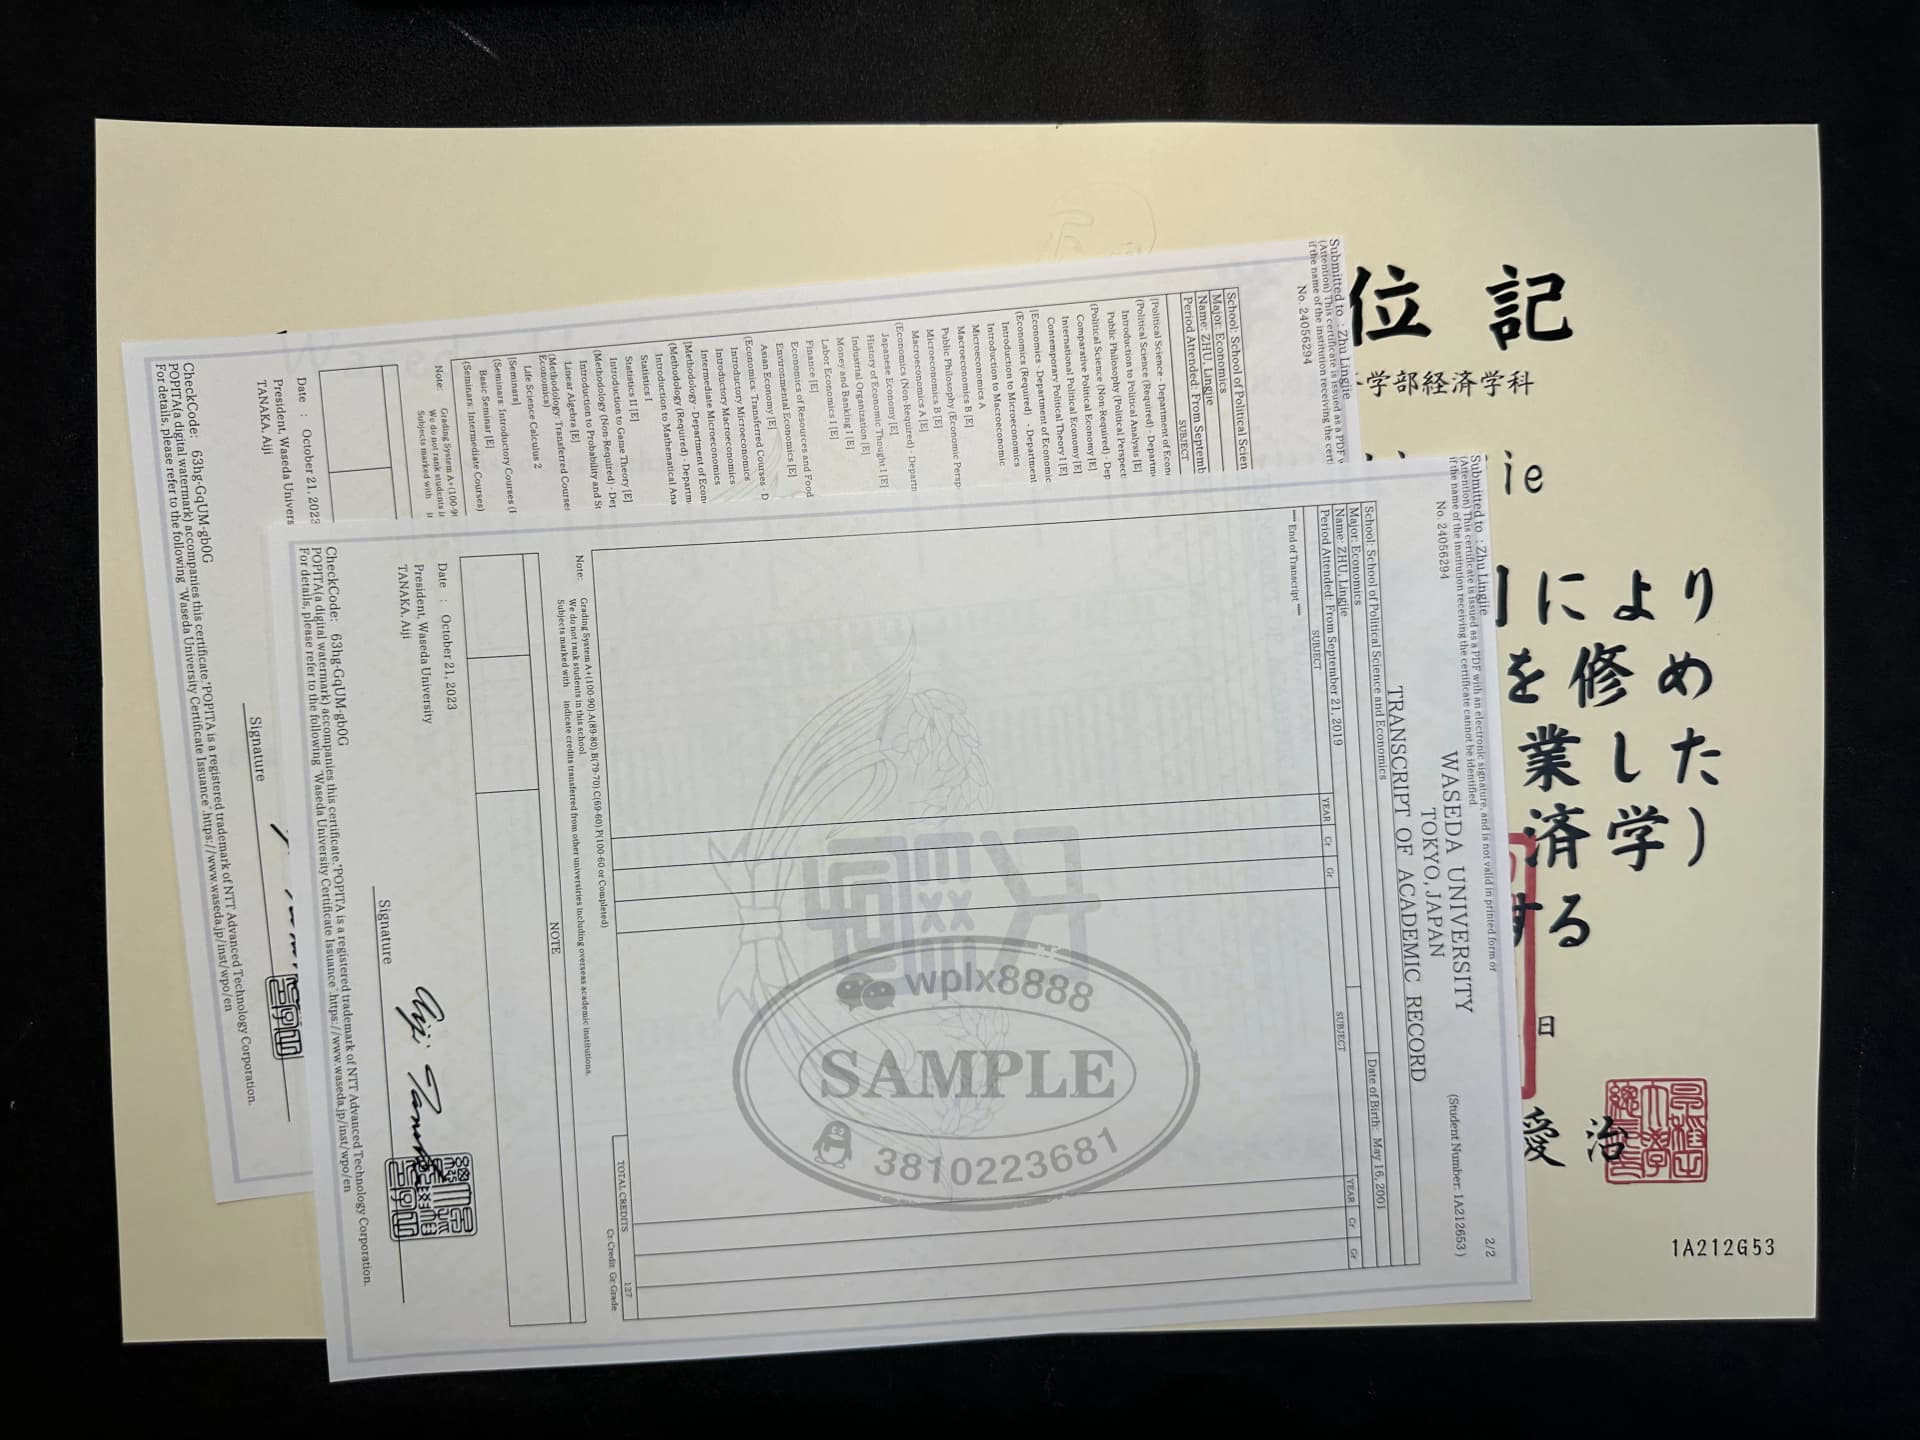 位記
学部経済学科
ie
により
を修め
業した
済学)
する
日
愛治
1A212G53
Submitted to : Zhu Lingjie
(Attention) This certificate is issued as a PDF
if the name of the institution receiving the cert
No. 24056294
School: School of Political Scien
Major: Economics
Name: ZHU, Lingjie
Period Attended: From Septemb
SUBJECT
(Political Science (Required) - Departm
Introduction to Political Analysis [E]
Public Philosophy (Political Perspect
(Political Science (Non-Required) - Dep
Comparative Political Economy [E]
International Political Economy [E]
Contemporary Political Theory I [E]
[Economics - Department of Economic
(Economics (Required) - Department
Introduction to Microeconomics
Introduction to Macroeconomic
Microeconomics A
Macroeconomics B [E]
Public Philosophy (Economic Persp
Microeconomics B [E]
Macroeconomics A [E]
(Economics (Non Required) - Departm
Japanese Economy [E]
History of Economic Thought I [E]
Industrial Organization [E]
Money and Banking I [E]
Labor Economics I [E]
Finance [E]
Economics of Resources and Food
Environmental Economics [E]
Asian Economy [E]
(Economics: Transferred Courses - D
Introductory Microeconomics
Introductory Macroeconomics
Intermediate Microeconomics
[Methodology - Department of Econ
(Methodology (Required) - Departm
Introduction to Mathematical Ana
Statistics I
Statistics II [E]
Introduction to Game Theory [E]
(Methodology (Non-Required) - Dep
Introduction to Probability and St
Linear Algebra [E]
(Methodology: Transferred Course
Economics)
Life Science Calculus 2
[Seminars]
(Seminars: Introductory Courses (I
Basic Seminar [E]
(Seminars: Intermediate Courses)
Note: Grading System A+(100-9
We do not rank students i
Subjects marked with
Date : October 21, 2023
President, Waseda Univers
TANAKA, Aiji
Signature
CheckCode: 63hg-GqUM-gb0G
POPITA(a digital watermark) accompanies this certificate.*POPITA is a registered trademark of NTT Advanced Technology Corporation.
For details, please refer to the following "Waseda University Certificate Issuance".https://www.waseda.jp/inst/wpo/en
Submitted to : Zhu Lingjie
(Attention) This certificate is issued as a PDF with an electronic signature, and is not valid in printed form or
if the name of the institution receiving the certificate cannot be identified.
No. 24056294
2/2
WASEDA UNIVERSITY
TOKYO, JAPAN
(Student Number: 1A212653)
TRANSCRIPT OF ACADEMIC RECORD
School: School of Political Science and Economics
Major: Economics
Name: ZHU, Lingjie
Date of Birth: May 16, 2001
Period Attended: From September 21, 2019
SUBJECT YEAR Cr Gr SUBJECT YEAR Cr Gr
--- End of Transcript ---
TOTAL CREDITS 127
Cr: Credit Gr: Grade
Note: Grading System A+(100-90) A(89-80) B(79-70) C(69-60) P(100-60 or Completed)
We do not rank students in this school
Subjects marked with indicate credits transferred from other universities including overseas academic institutions.
NOTE
Date : October 21, 2023
President, Waseda University
TANAKA, Aiji
Signature
Aiji Tanaka
CheckCode: 63hg-GqUM-gb0G
POPITA(a digital watermark) accompanies this certificate.*POPITA is a registered trademark of NTT Advanced Technology Corporation.
For details, please refer to the following "Waseda University Certificate Issuance".https://www.waseda.jp/inst/wpo/en
wplx8888
SAMPLE
3810223681